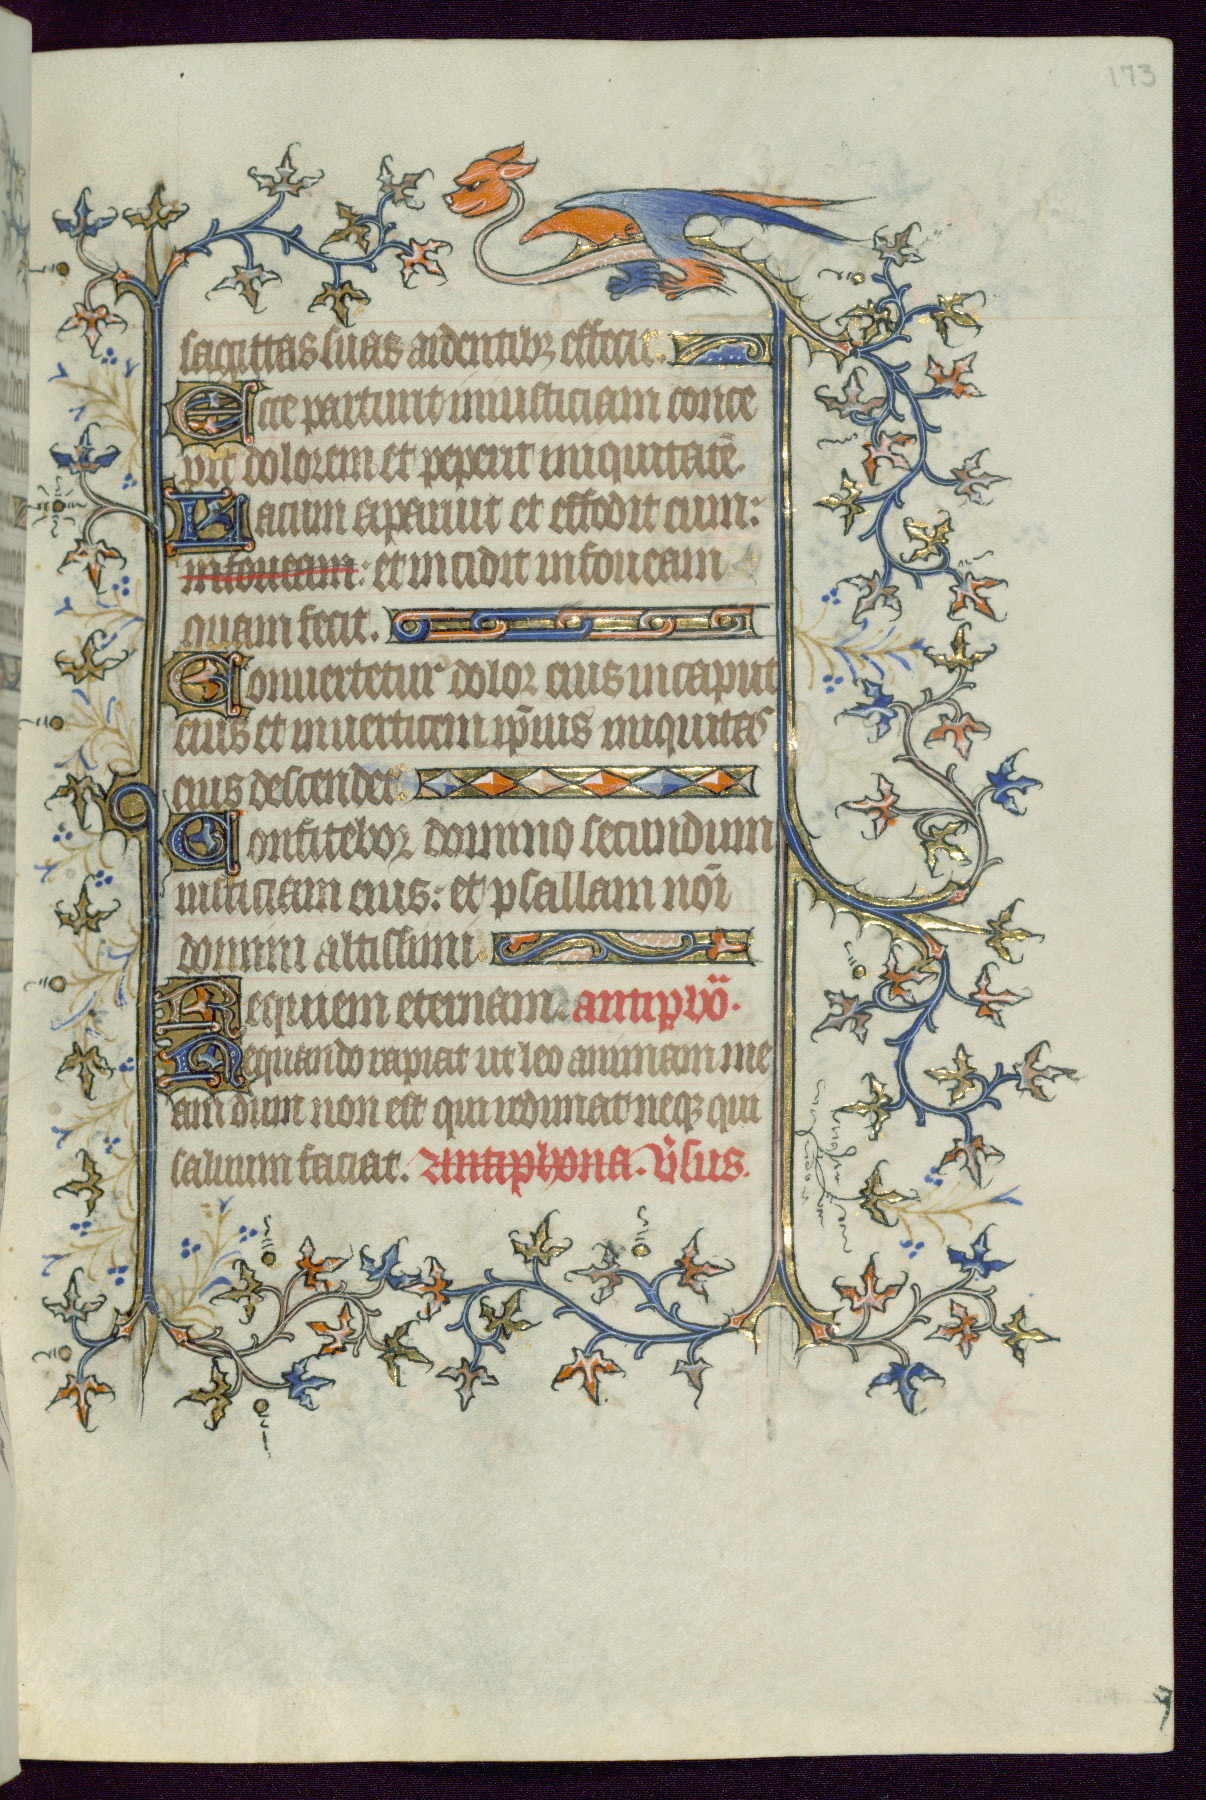 173
sagittas suas ardentibꝫ effecit.
Ecce parturit iniusticiam conce
pit dolorem et peperit iniquitatē.
Lacum aparuit et effodit eum:
in foueam: et incidit in foueam
quam fecit.
Conuertetur dolor eius in caput
eius et in uerticem ip̄ius iniquitas
eius descendet.
Confitebor domino secundum
iusticiam eius: et psallam nōi
domini altissimi
Requiem eternam. antiphō.
Nequando rapiat ut leo animam me
am dum non est qui redimat neqꝫ qui
saluum faciat. Antiphona. v̄sus.